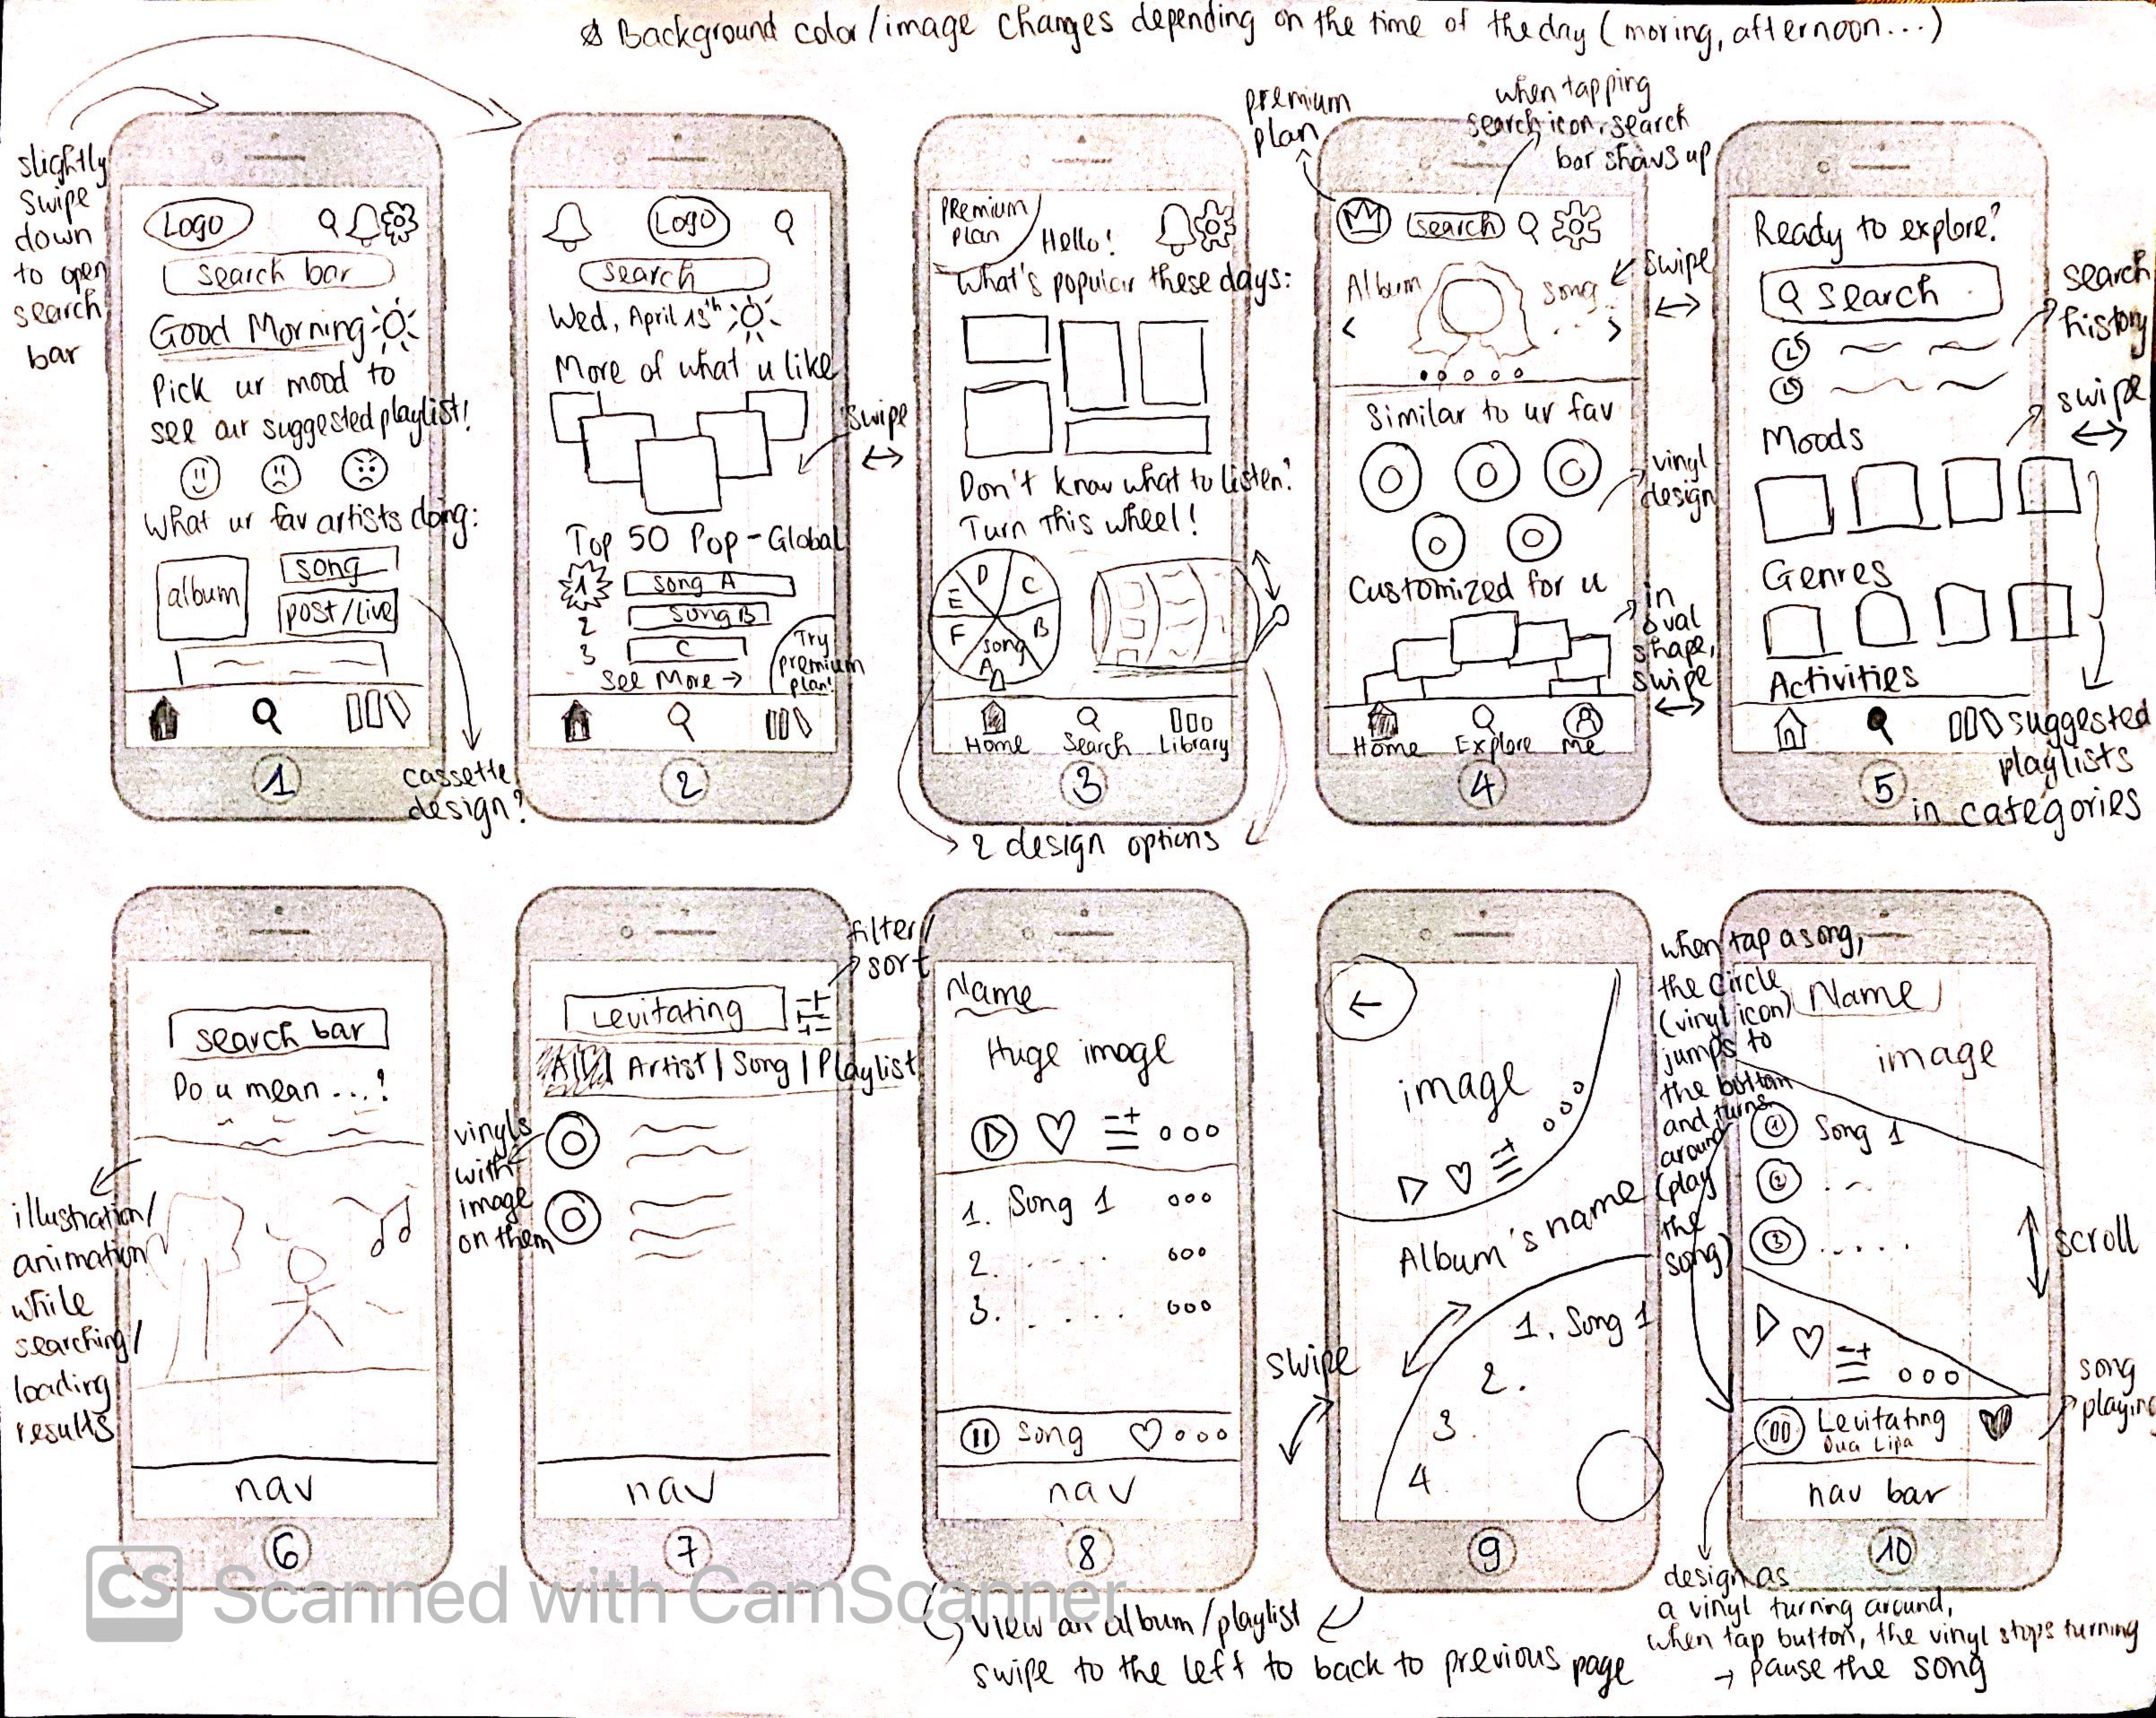 Background color/image changes depending on the time of the day (moring, afternoon...)
slightly
swipe
down
to open
search
bar
Logo
search bar
Good Morning
Pick ur mood to
see our suggested playlist!
What ur fav artists doing:
album
song
post/live
1
cassette
design?
Logo
search
Wed, April 13th
More of what u like
swipe
Top 50 Pop - Global
1 Song A
2 Song B
3 C
See More →
Try
premium
plan!
2
Premium
Plan
Hello!
What's popular these days:
Don't know what to listen?
Turn this wheel!
D
C
E
B
F
song
A
Home Search Library
3
2 design options
premium
plan
when tapping
search icon, search
bar shows up
search
Album
song
swipe
Similar to ur fav
vinyl
design
Customized for u
in
oval
shape,
swipe
Home Explore Me
4
Ready to explore?
search
search
history
Moods
swipe
Genres
Activities
suggested
playlists
in categories
5
search bar
Do u mean ...?
illustration/
animation
while
searching/
loading
results
nav
6
filter/
sort
Levitating
All | Artist | Song | Playlist
vinyls
with
image
on them
nav
7
Name
Huge image
1. Song 1
2.
3.
Song
nav
8
view an album/playlist
swipe to the left to back to previous page
←
image
Album's name
1. Song 1
2.
3.
4
swipe
9
when tap a song,
the circle
(vinyl icon)
jumps to
the bottom
and turns
around
(play
the
song)
Name
image
1 Song 1
2
3
scroll
song
playing
Levitating
Dua Lipa
nav bar
10
design as
a vinyl turning around,
when tap button, the vinyl stops turning
→ pause the song
CS Scanned with CamScanner